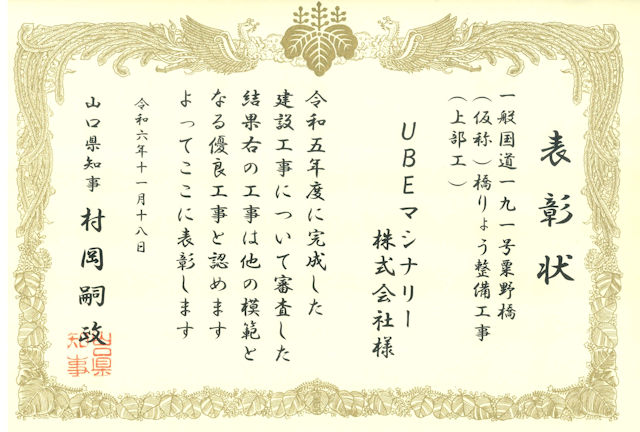 表彰状
一般国道一九一号粟野橋
（仮称）橋りょう整備工事
（上部工）
UBEマシナリー
株式会社様
令和五年度に完成した
建設工事について審査した
結果右の工事は他の模範と
なる優良工事と認めます
よってここに表彰します
令和六年十一月十八日
山口県知事 村岡嗣政
山口県
知事